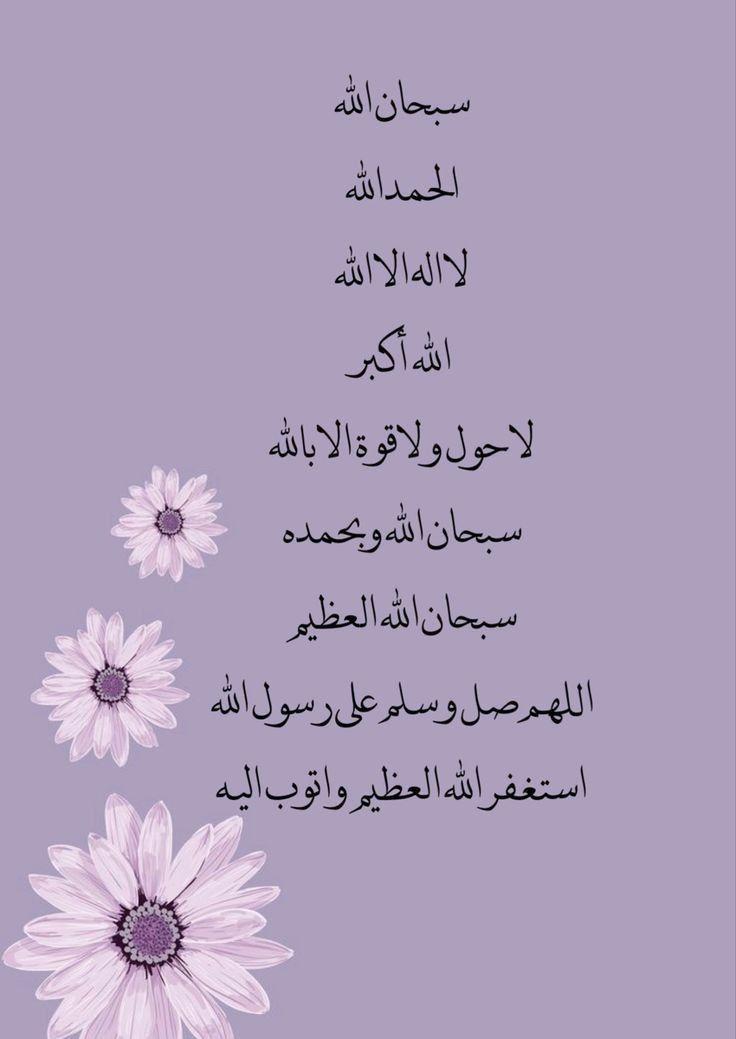 سبحان الله
الحمدالله
لا اله الا الله
الله أكبر
لا حول ولا قوة الا بالله
سبحان الله وبحمده
سبحان الله العظيم
اللهم صل وسلم على رسول الله
استغفر الله العظيم واتوب اليه